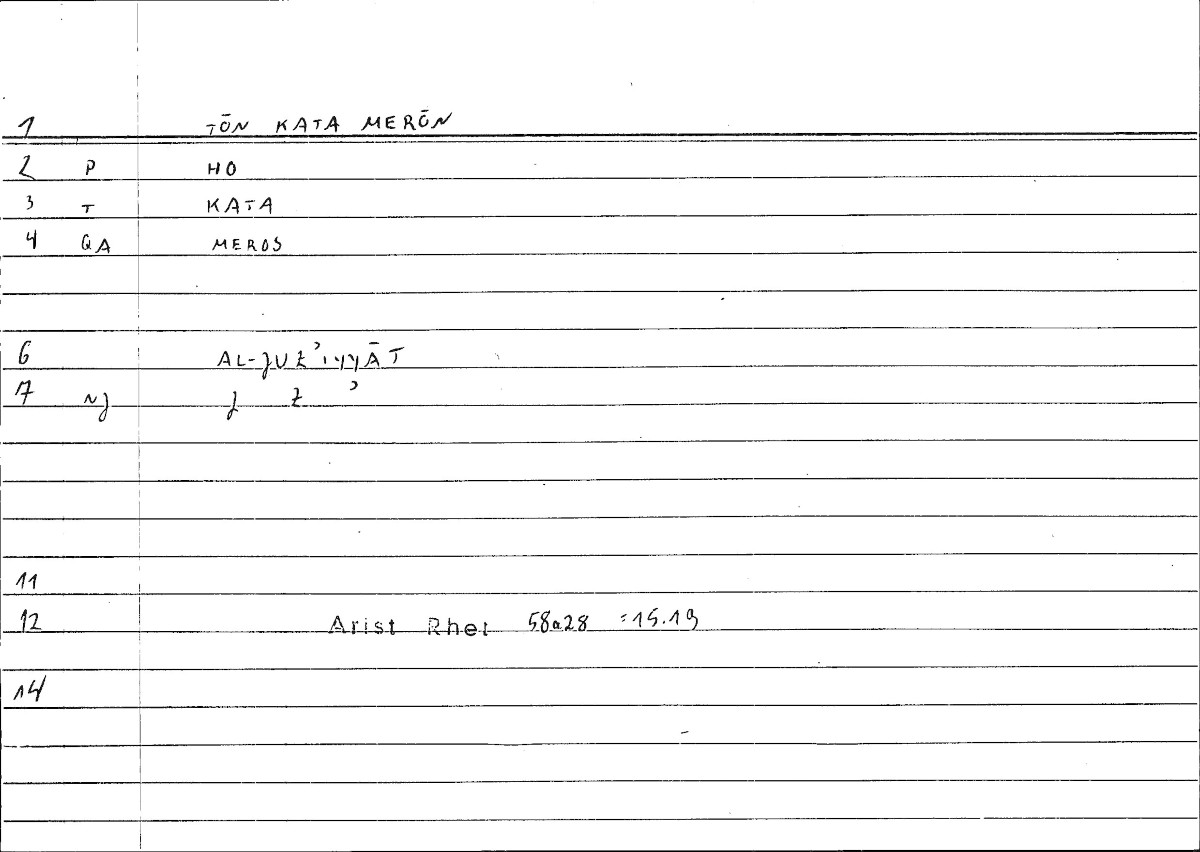 1 TŌN KATA MERŌN
2 P HO
3 T KATA
4 QA MEROS
6 AL-JUZʾIYYĀT
7 NJ J Z ʾ
11
12 Arist Rhet 58a28 =15.19
14